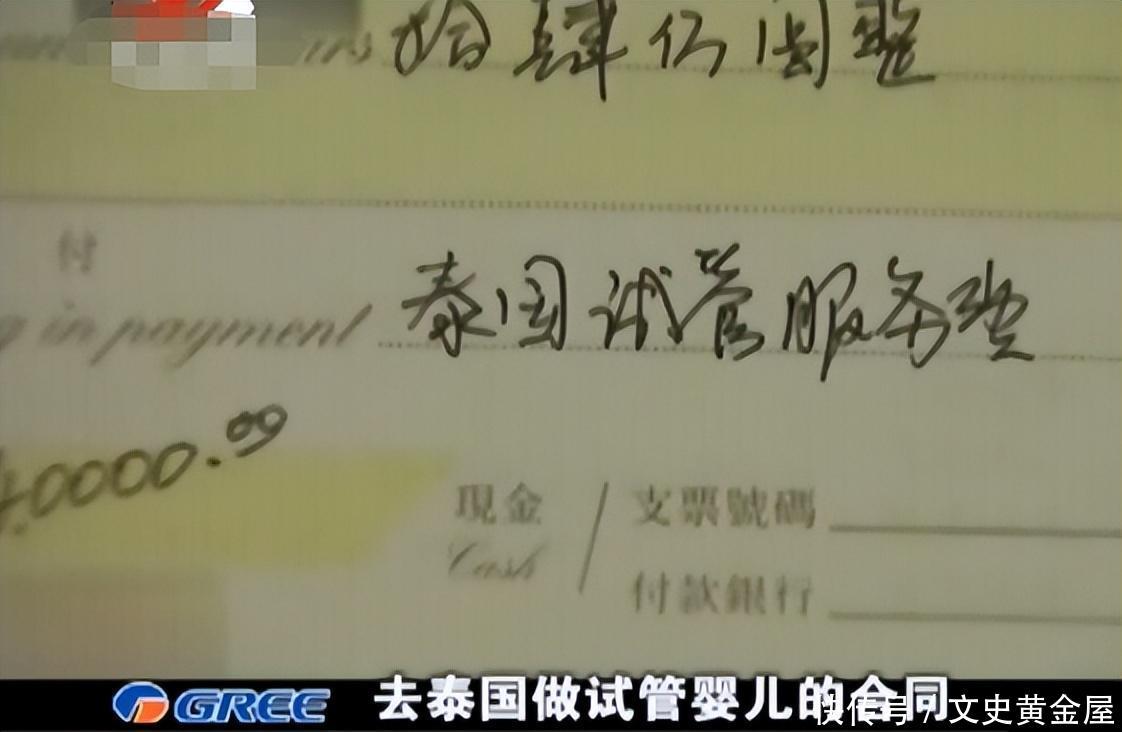 拾肆 圆整
付
in payment 泰国试管服务
0000.00
現金 / 支票號碼
Cash
付款銀行
GREE 去泰国做试管婴儿的合同
快传号 / 文史黄金屋